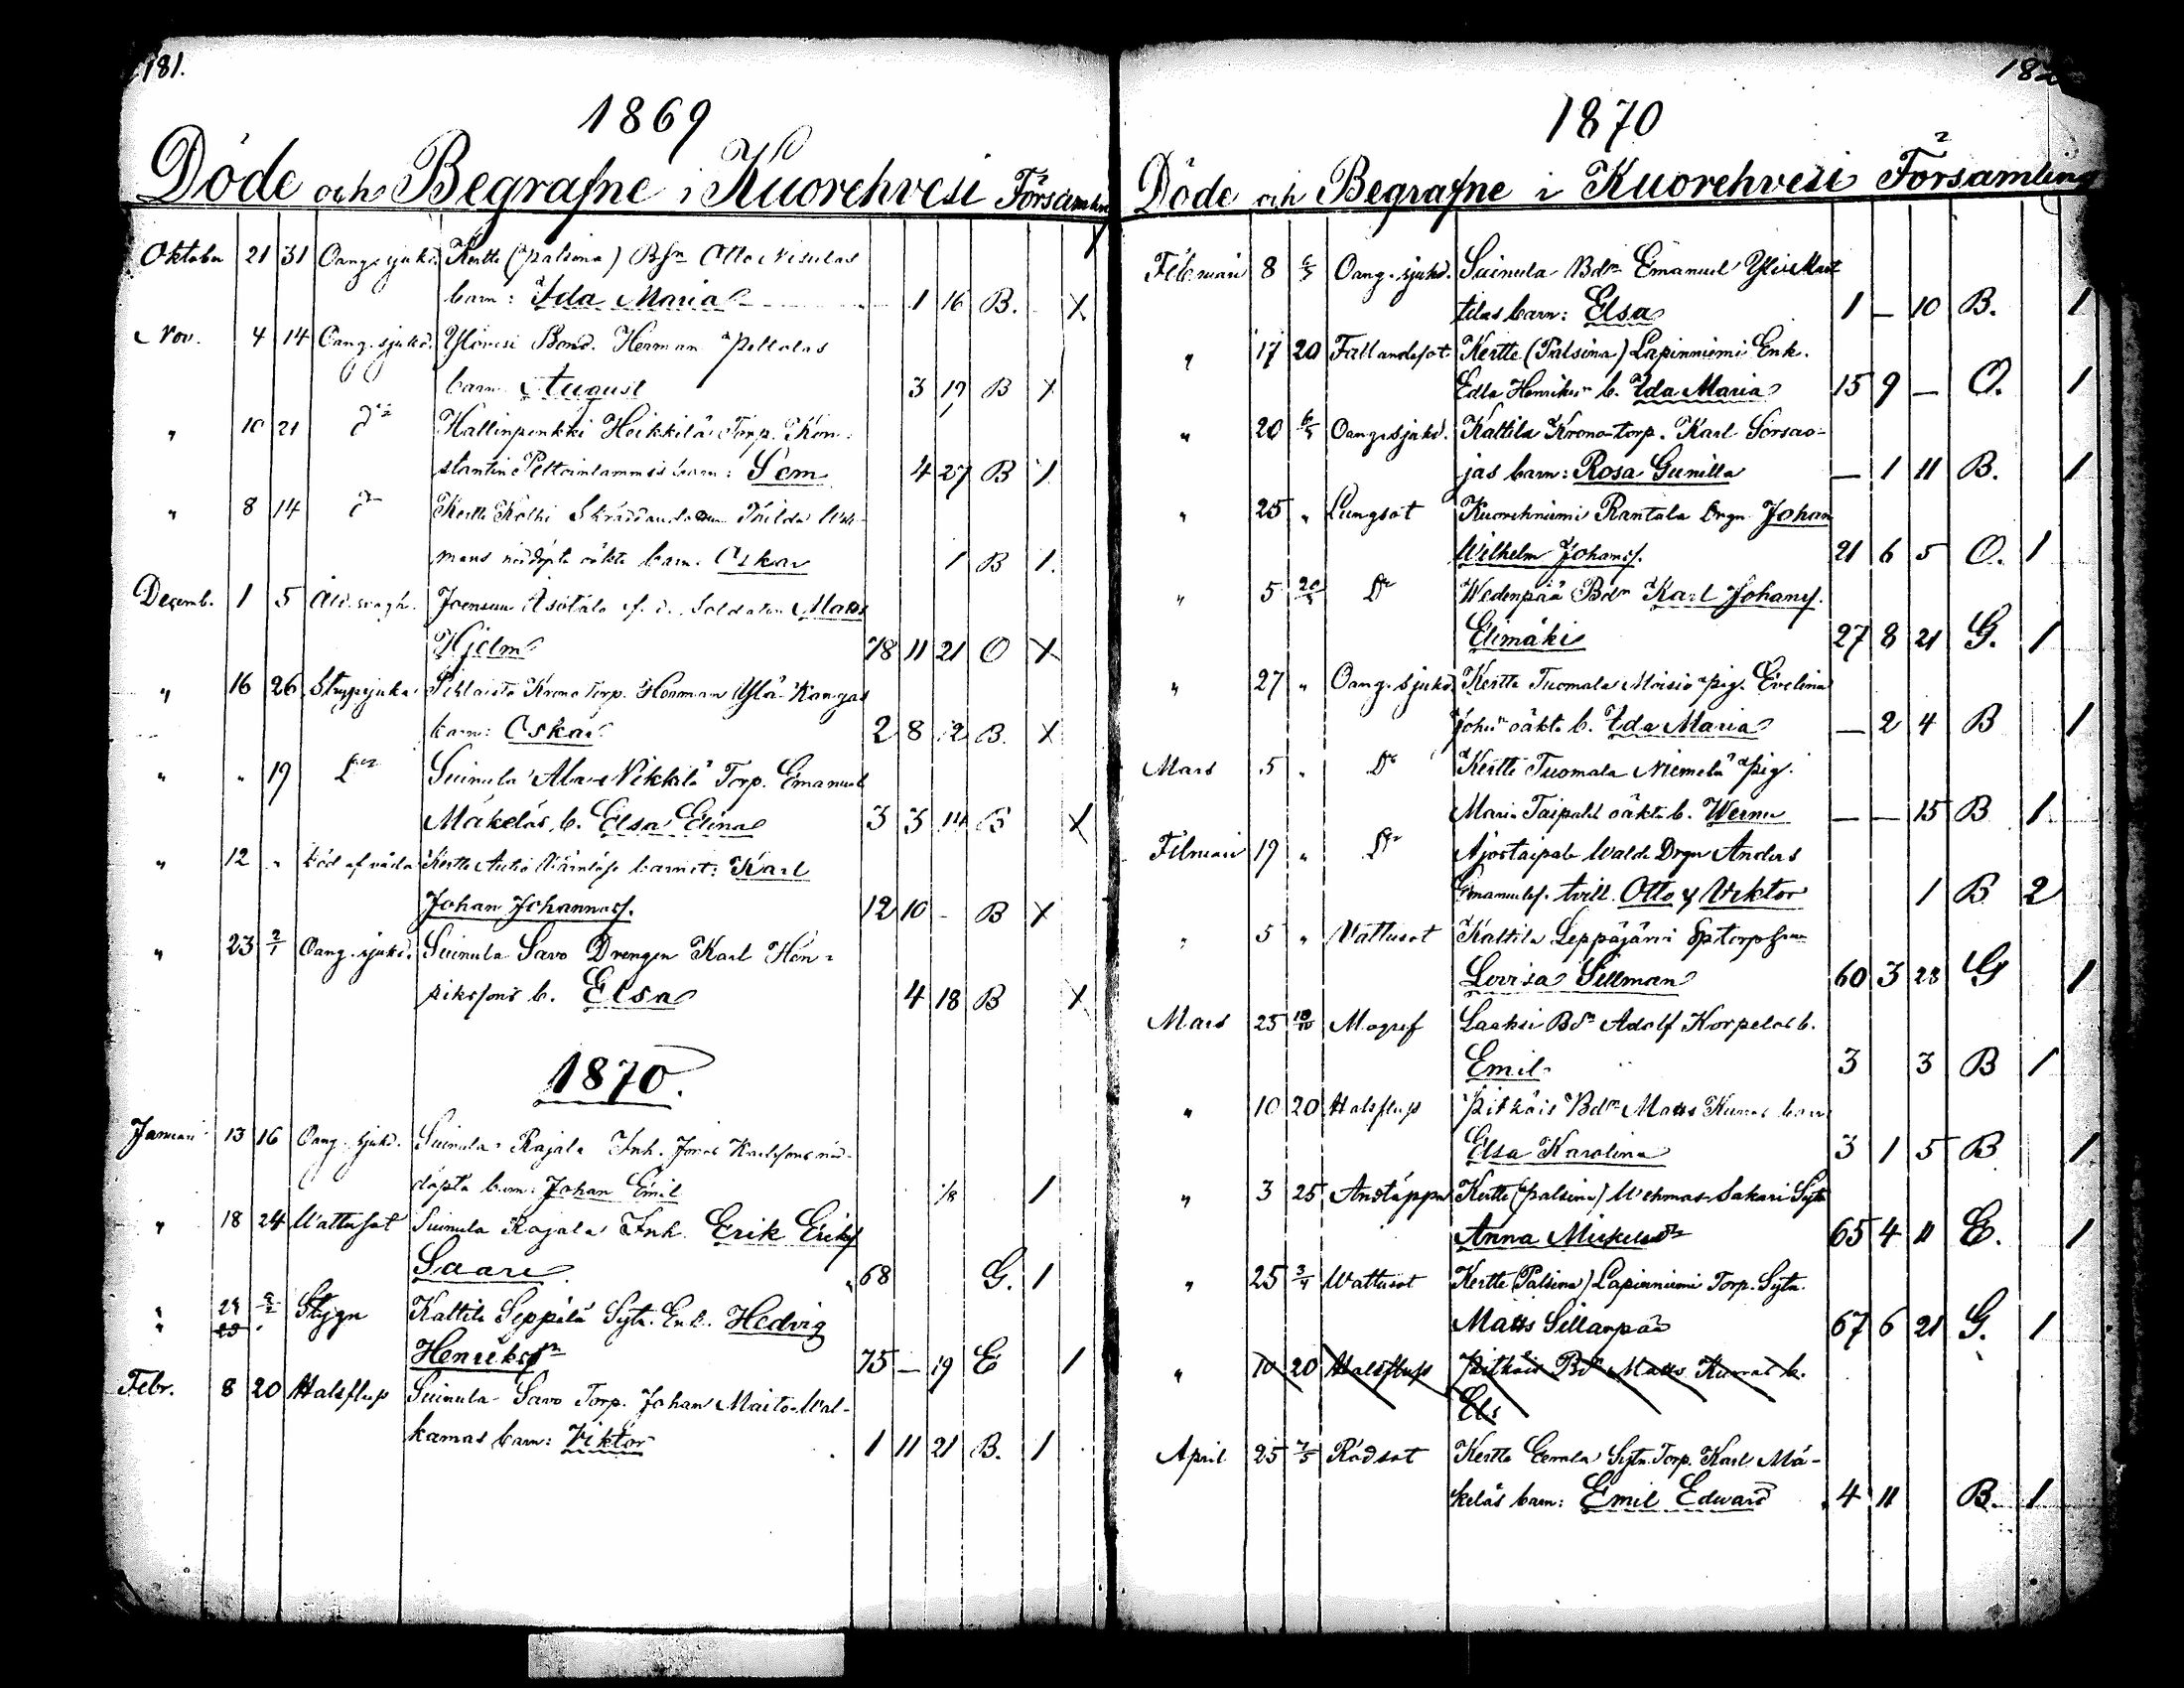 181.
1869
Döde och Begrafne i Kuorehvesi Församl
Oktober 21 31 Oang. sjukd. Kertte (Palsina) Bsn Otto Nisulas
barn: Ida Maria 1 16 B. X
Nov. 4 14 Oang. sjukd. Ylövesi Bond. Herman Pellalas
barn August 3 19 B X
" 10 21 Dº Hallinpenkki Heikkilä Torp. Kon-
stantin barn: Sem 4 27 B 1
" 8 14 Dº Kertte Kolhi
mans nödöpta oäkta barn. Oskar 1 B 1.
Decemb. 1 5 Åld. svagh. Joensuu Asotalo f. d. Soldaten Matts
Hjelm 78 11 21 O X
" 16 26 Strypsjuka Pihlaisto Krono Torp. Herman Ylä-Kangas
barn: Oskar 2 8 12 B. X
" " 19 Dº Suinula Ala-Nikkilä Torp. Emanuel
Mäkeläs b. Elsa Elina 3 3 14 B X
" 12 " Död af våda Kertte Autio Wärnlösa barnet: Karl
Johan Johannesf. 12 10 - B X
" 23 2/1 Oang. sjukd. Suinula Savo Drengen Karl Hen-
rikssons b. Elsa 4 18 B X
1870.
Januari 13 16 Oang. sjukd. Suinula Rajala Inh. Jonas Karlssons nöd-
döpta barn: Johan Emil 1/8 1
" 18 24 Wattusot Suinula Rajala Inh. Erik Eriksf
Saari 68 G. 1
" 24 Stygn Kattila Seppälä Sytn. Enk. Hedvig
Henriksdr 75 — 19 E 1
Febr. 8 20 Halsfluss Suinula Savo Torp. Johan Maito-Wal-
kamas barn: Viktor 1 11 21 B. 1
182
1870
Döde och Begrafne i Kuorehvesi Församling
Februari 8 6/3 Oang. sjukd. Suinula Bdn Emanuel Yli-Mart
tilas barn: Elsa 1 — 10 B. 1
" 17 20 Fallandesot Kertte (Palsina) Lapinniemi Enk.
Edla Henriksn b. Ida Maria 15 9 — O. 1
" 20 6/3 Oang. sjukd. Kattila Krono-torp. Karl Sorsao-
jas barn: Rosa Gunilla — 1 11 B. 1
" 25 " Lungsot Kuorehniemi Rantala Drgn Johan
Wilhelm Johansf. 21 6 5 O. 1
" 5 20/3 Dº Wedenpää Bdn Karl Johansf.
Elimäki 27 8 21 G. 1
" 27 " Oang. sjukd. Kertte Tuomala Moisio Pig. Evelina
Johsn oäkta b. Ida Maria — 2 4 B 1
Mars 5 " Dº Kertte Tuomala Niemelä Pig.
Maria Taipale oäkta b. Werner — — 15 B 1
Februari 19 " Dº Ajostaipale Walda Drgn Anders
Emanuelsf. tvill. Otto & Viktor 1 B 2
" 5 " Wattusot Kattila Leppäjärvi
Lovisa Sillman 60 3 28 G 1
Mars 25 10/10 Magref Laaksi Bdn Adolf Korpelas b.
Emil 3 3 B 1
" 10 20 Halsfluss Pitkäis Bdn Matts Kumas barn
Elsa Karolina 3 1 5 B 1
" 3 25 Andtäppa Kertte (Palsina) Wehmas-Sakari Sytn
Anna Mickelsdr 65 4 11 E. 1
" 25 3/4 Wattusot Kertte (Palsina) Lapinniemi Torp. Sytn.
Matts Sillanpää 67 6 21 G. 1
" 10 20 Halsfluss Pitkäis Bdn Matts Kumas b.
Els
April 25 7/5 Rödsot Kertte Eerola Sytn. Torp. Karl Mä-
keläs barn: Emil Edward 4 11 B. 1